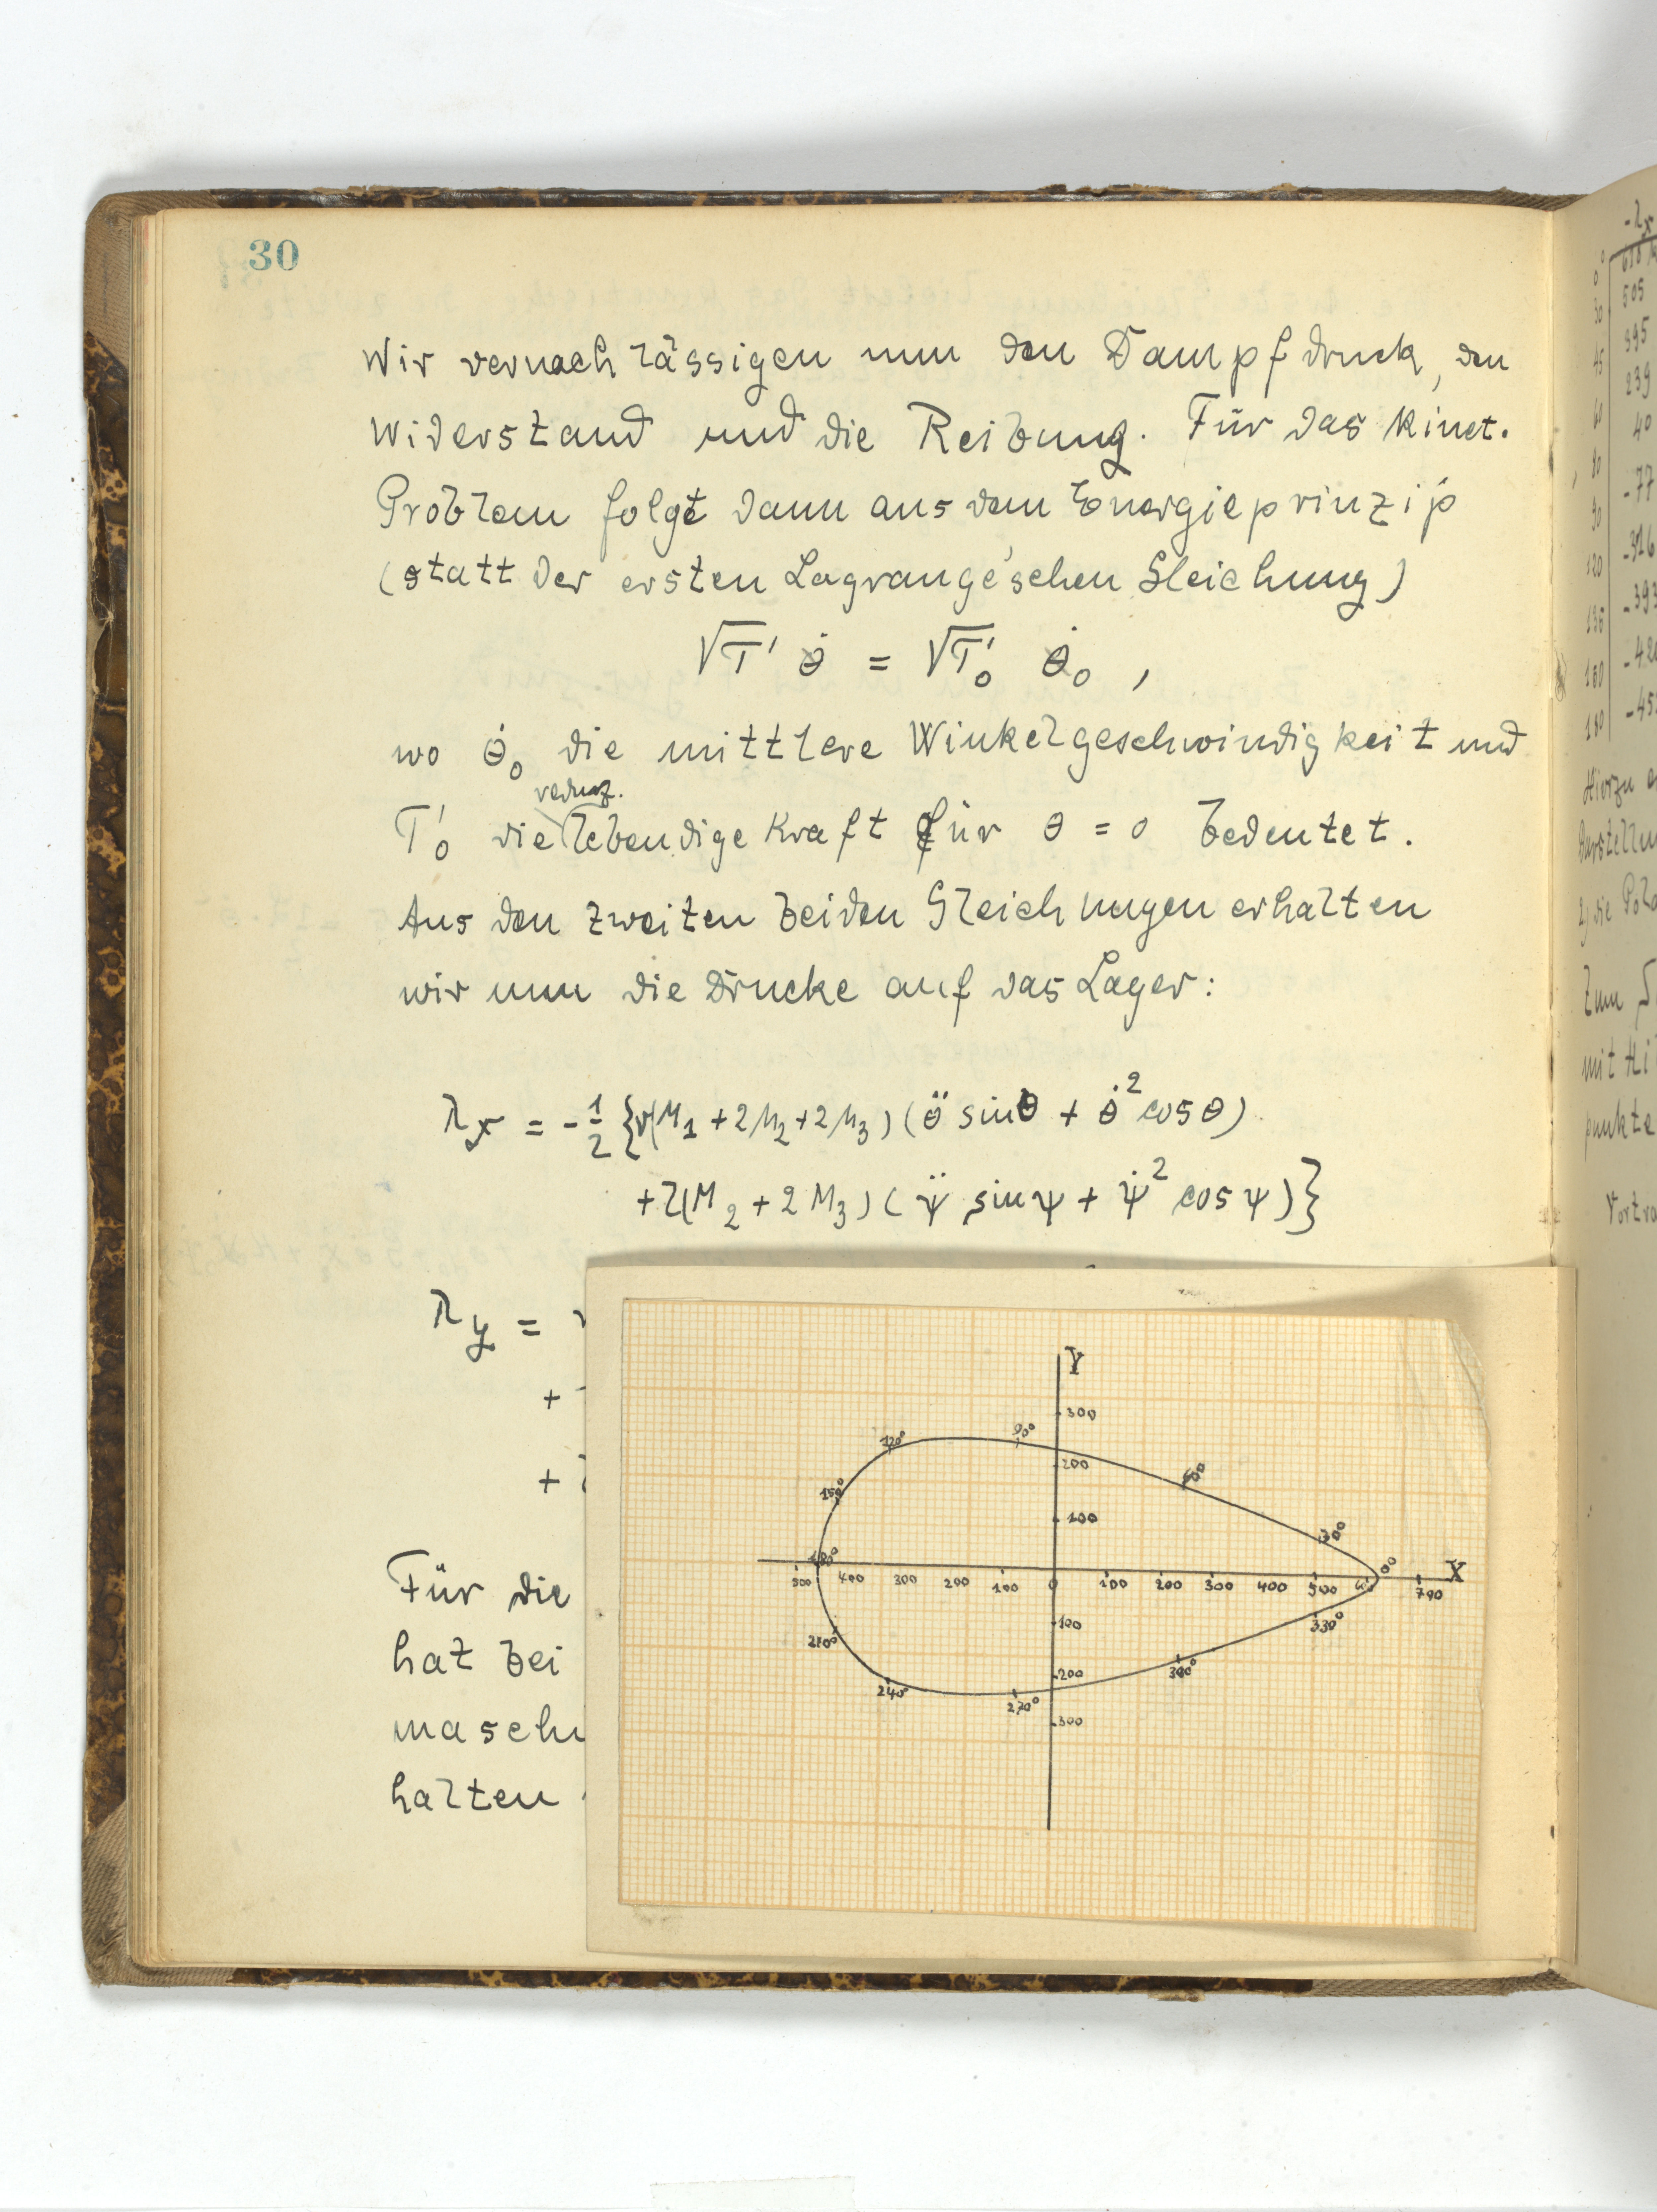 30
Wir vernachlässigen nun den Dampfdruck, den
Widerstand und die Reibung. Für das kinet.
Problem folgt dann aus dem Energieprinzip
(statt der ersten Lagrange'schen Gleichung)
√T' θ̇ = √T'₀ θ̇₀ ,
wo θ̇₀ die mittlere Winkelgeschwindigkeit und
reduz.
T'₀ die lebendige Kraft für θ = 0 bedeutet.
Aus den zweiten beiden Gleichungen erhalten
wir nun die Drucke auf das Lager:
λx = -1/2 {r(M₁ + 2M₂ + 2M₃) (θ̈ sinθ + θ̇² cosθ)
+ l(M₂ + 2M₃) (ψ̈ sinψ + ψ̇² cosψ)}
λy =
+
+
Für die
hat bei
masch
halten
Y
300
90°
120°
200
60°
150°
100
30°
180°
0°
X
500 400 300 200 100 0 100 200 300 400 500 700
100
330°
210°
200
300°
240°
270°
300
0°
30
45
60
90
120
180
505
395
239
40
-77
-316
Hierzu
Zum
mit
punkte